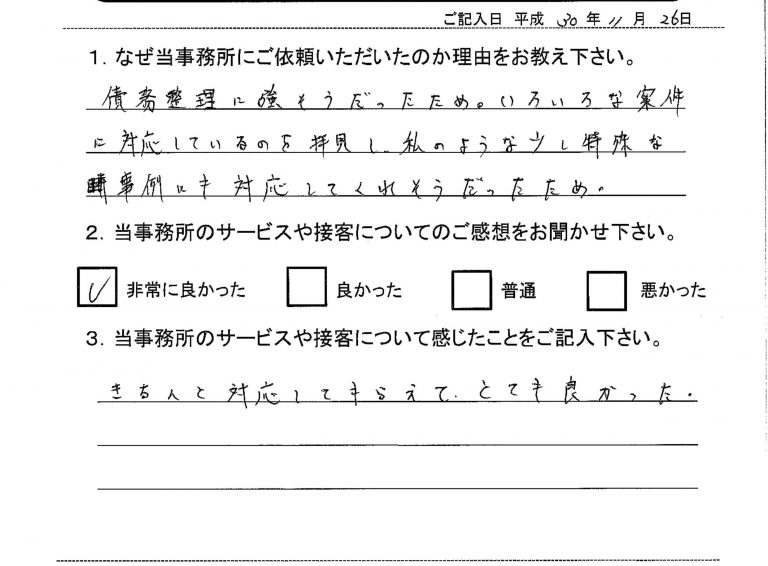 ご記入日 平成 30 年 11 月 26日
1. なぜ当事務所にご依頼いただいたのか理由をお教え下さい。
債務整理に強そうだったため。いろいろな案件
に対応しているのを拝見し、私のような少し特殊な
事例にも対応してくれそうだったため。
2. 当事務所のサービスや接客についてのご感想をお聞かせ下さい。
非常に良かった 良かった 普通 悪かった
3. 当事務所のサービスや接客について感じたことをご記入下さい。
きちんと対応してもらえて、とても良かった。